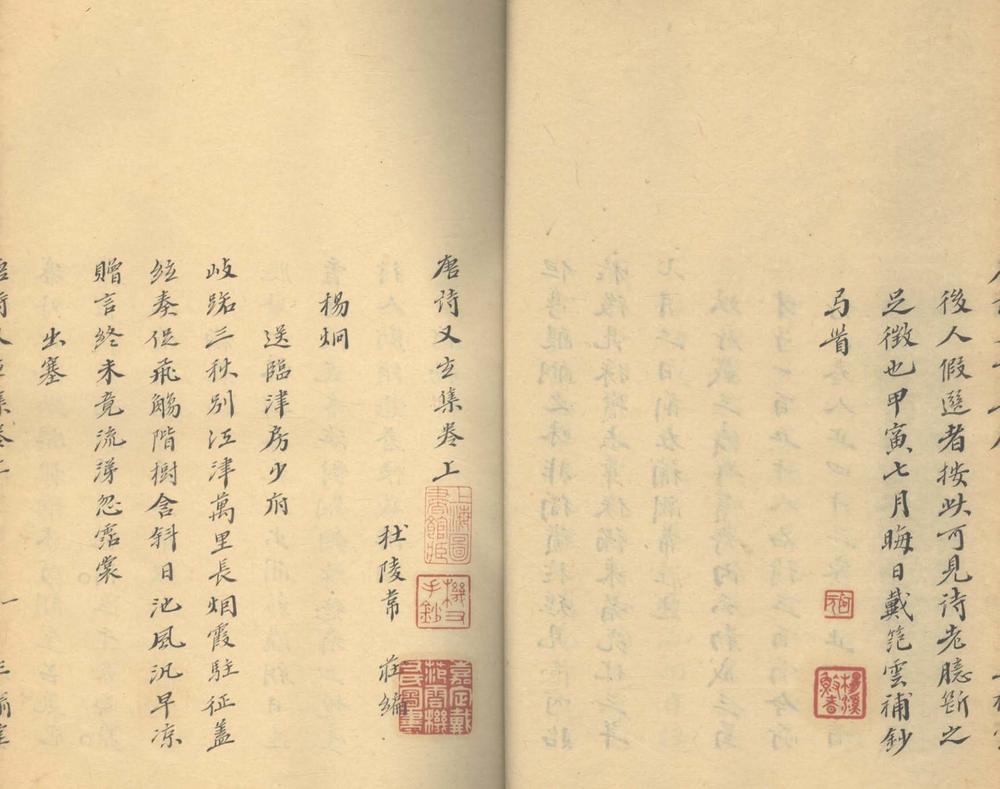 後人假選者按此可見诗老臆斷之
足徵也甲寅七月晦日戴范雲補鈔
馬首
唐诗又玄集卷上
杜陵韋 莊 編
楊炯
送臨津房少府
岐路三秋別江津萬里長烟霞駐征蓋
絃奏促飛觴階樹含斜日池風汎早凉
贈言終未竟流涕忽霑裳
出塞
上海圖書館藏
機父手鈔
嘉定戴